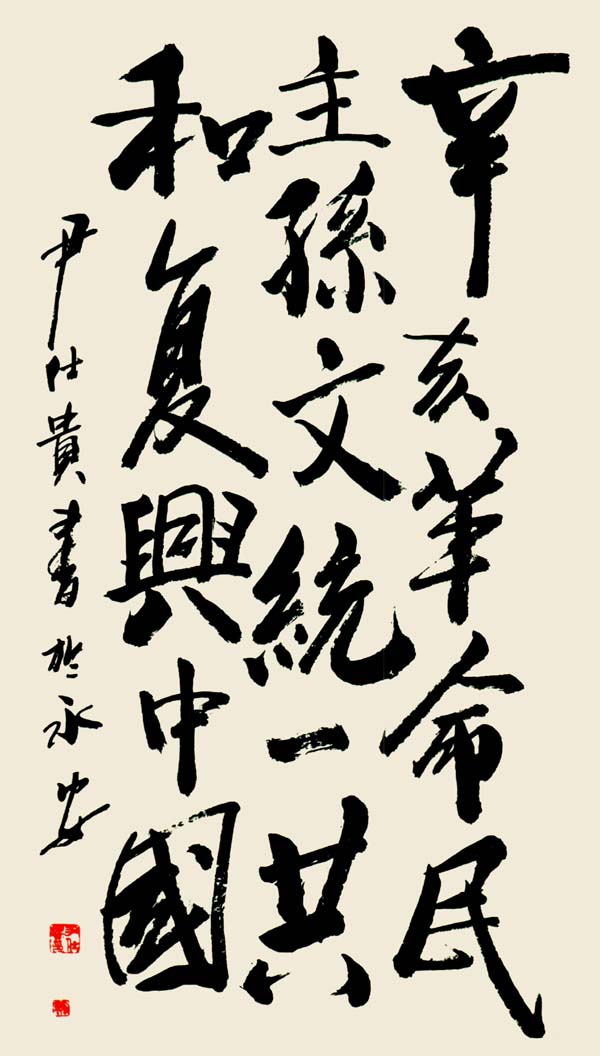 辛亥革命民
主孫文統一共
和復興中國
尹仕貴書於永安